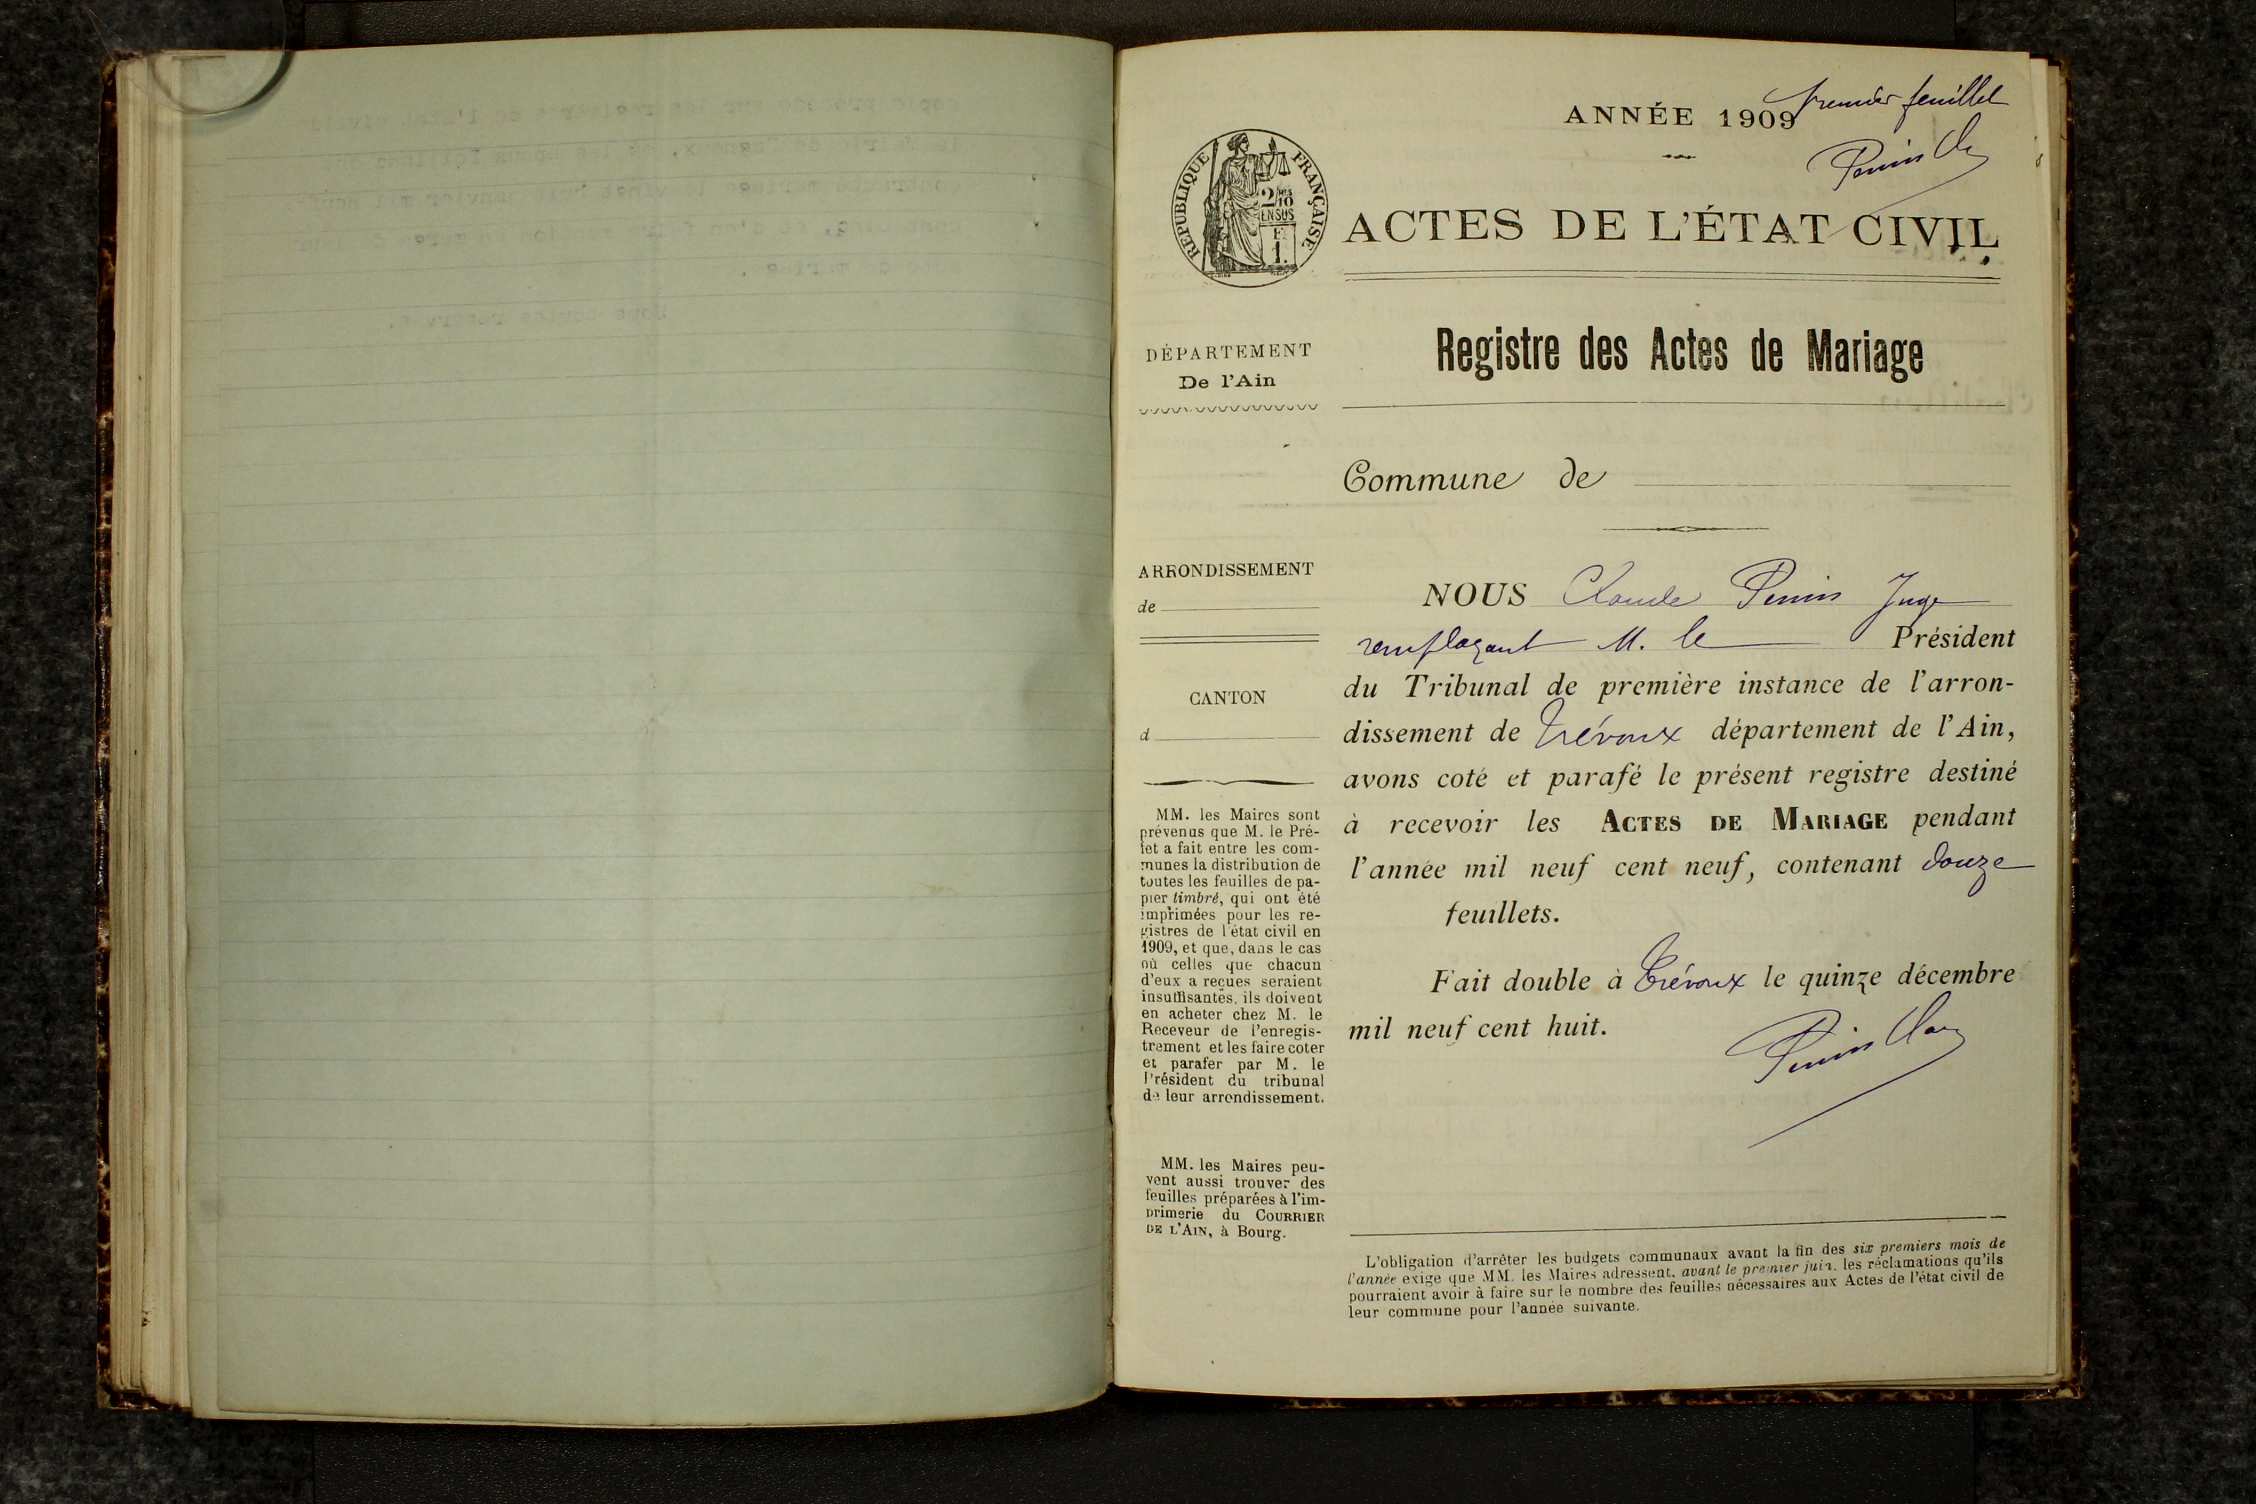 ANNÉE 1909
premier feuillet
RÉPUBLIQUE FRANÇAISE
2/10
EN SUS
1.
ACTES DE L'ÉTAT CIVIL
DÉPARTEMENT
De l'Ain
Registre des Actes de Mariage
Commune de
ARRONDISSEMENT
de
CANTON
d
MM. les Maires sont
prévenus que M. le Pré-
fet a fait entre les com-
munes la distribution de
toutes les feuilles de pa-
pier timbré, qui ont été
imprimées pour les re-
gistres de l'état civil en
1909, et que, dans le cas
où celles que chacun
d'eux a reçues seraient
insuffisantes, ils doivent
en acheter chez M. le
Receveur de l'enregis-
trement et les faire coter
et parafer par M. le
Président du tribunal
de leur arrondissement.
MM. les Maires peu-
vent aussi trouver des
feuilles préparées à l'im-
primerie du COURRIER
DE L'AIN, à Bourg.
NOUS Claude Juge
remplaçant M. le Président
du Tribunal de première instance de l'arron-
dissement de Trévoux département de l'Ain,
avons coté et parafé le présent registre destiné
à recevoir les ACTES DE MARIAGE pendant
l'année mil neuf cent neuf, contenant douze
feuillets.
Fait double à Trévoux le quinze décembre
mil neuf cent huit.
L'obligation d'arrêter les budgets communaux avant la fin des six premiers mois de
l'année exige que MM. les Maires adressent, avant le premier juin, les réclamations qu'ils
pourraient avoir à faire sur le nombre des feuilles nécessaires aux Actes de l'état civil de
leur commune pour l'année suivante.